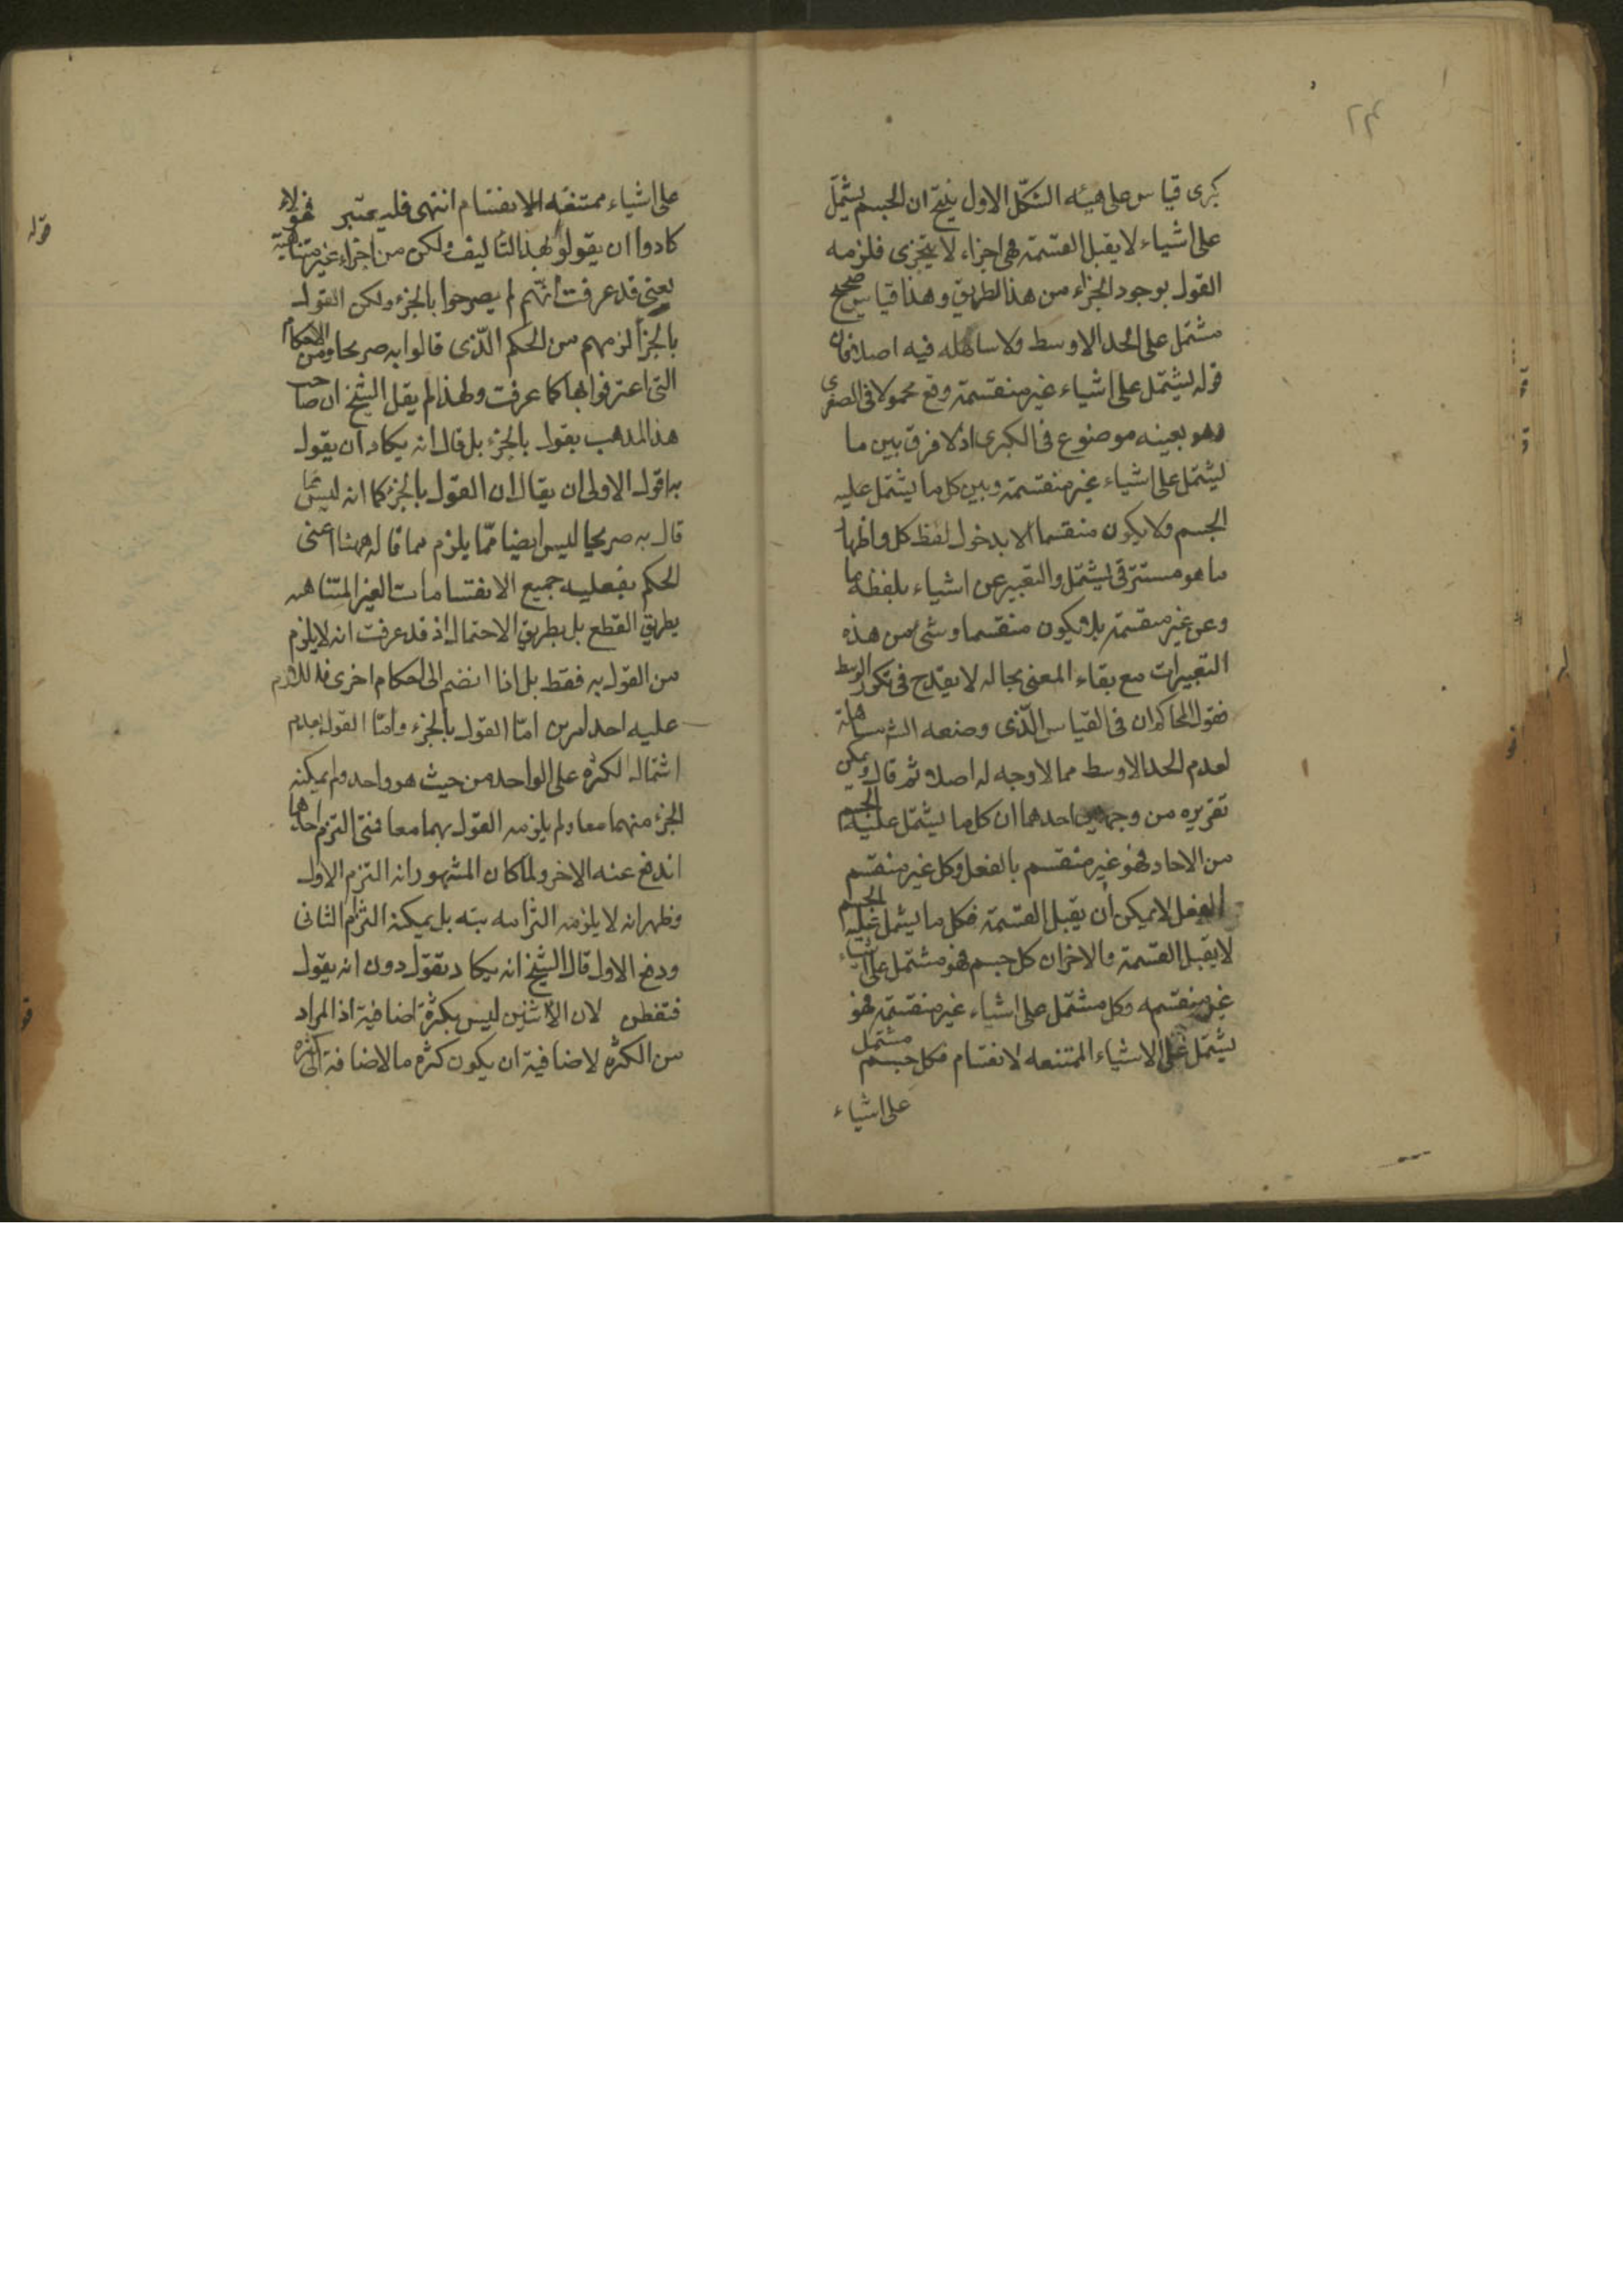 ٢٣
كبرى قياس على هيئه الشكل الاول ينتج ان الجسم يشتمل
على اشياء لا يقبل القسمة هى اجزاء لا يتجزى فلزمه
القول بوجود الجزء من هذا الطريق وهذا قياس صحيح
مشتمل على الحد الاوسط ولا مساهله فيه اصلا فان
قوله يشتمل على اشياء غير منقسمة وقع محمولا فى الصغرى
وهو بعينه موضوع فى الكبرى اذ لا فرق بين ما
يشتمل على اشياء غير منقسمة وبين كل ما يشتمل عليه
الجسم ولا يكون منقسما الا بدخول لفظ كل واظهار
ما هو مستتر فى يشتمل والتعبير عن اشياء بلفظه ما
وعن غير منقسمة بلا يكون منقسما وشئ من هذه
التعبيرات مع بقاء المعنى بحاله لا يقدح فى تكرر الوسط
فقول المحاكم ان فى القياس الذى وضعه الش مساهلة
لعدم الحد الاوسط مما لا وجه له اصلا ثم قال ويمكن
تقريره من وجهين احدهما ان كل ما يشتمل عليه الجسم
من الاحاد فهو غير منقسم بالفعل وكل غير منقسم
بالفعل لا يمكن ان يقبل القسمة فكل ما يشتمل عليه الجسم
لا يقبل القسمة والاخر ان كل جسم فهو مشتمل على اشياء
غير منقسمه وكل مشتمل على اشياء غير منقسمة فهو
يشتمل على الاشياء الممتنعه لانقسام فكل جسم مشتمل
على اشياء
على اشياء ممتنعه الانقسام انتهى فليعتبر فهؤلاء
قوله
كادوا ان يقولوا بهذا التأليف ولكن من اجزاء غير متناهية
يعنى قد عرفت انهم لم يصرحوا بالجزء ولكن القول
بالجزء لزمهم من الحكم الذى قالوا به صريحا ومن الاحكام
التى اعترفوا بها كما عرفت ولهذا لم يقل الشيخ ان صاحب
هذا المذهب يقول بالجزء بل قال انه يكاد ان يقول
به اقول الاولى ان يقال ان القول بالجزء كما انه ليس مما
قال به صريحا ليس ايضا مما يلزم مما قاله ههنا اعنى
الحكم بفعليه جميع الانقسامات الغير المتناهيه
بطريق القطع بل بطريق الاحتمال اذ قد عرفت انه لا يلزم
من القول به فقط بل اذا انضم الى احكام اخرى فاللازم
عليه احد امرين اما القول بالجزء واما القول بعدم
اشتمال الكثره على الواحد من حيث هو واحد ولم يمكنه
الجزء منهما معا ولم يلزمه القول بهما معا فمتى التزم احدهما
اندفع عنه الاخر ولما كان المشهور انه التزم الاول
وظهر انه لا يلزمه التزامه بته بل يمكنه التزام الثانى
ودفع الاول قال الشيخ انه يكاد يقول دون انه يقول
فتفطن لان الاثنين ليس بكثرة اضافية اذا المراد
من الكثره لاضافية ان يكون كثره مالاضافة الى كثره